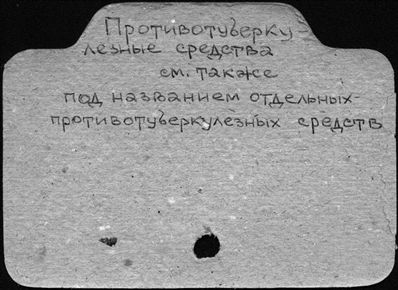 Противотуберку-
лезные средства
см. также
под названием отдельных
противотуберкулезных средств